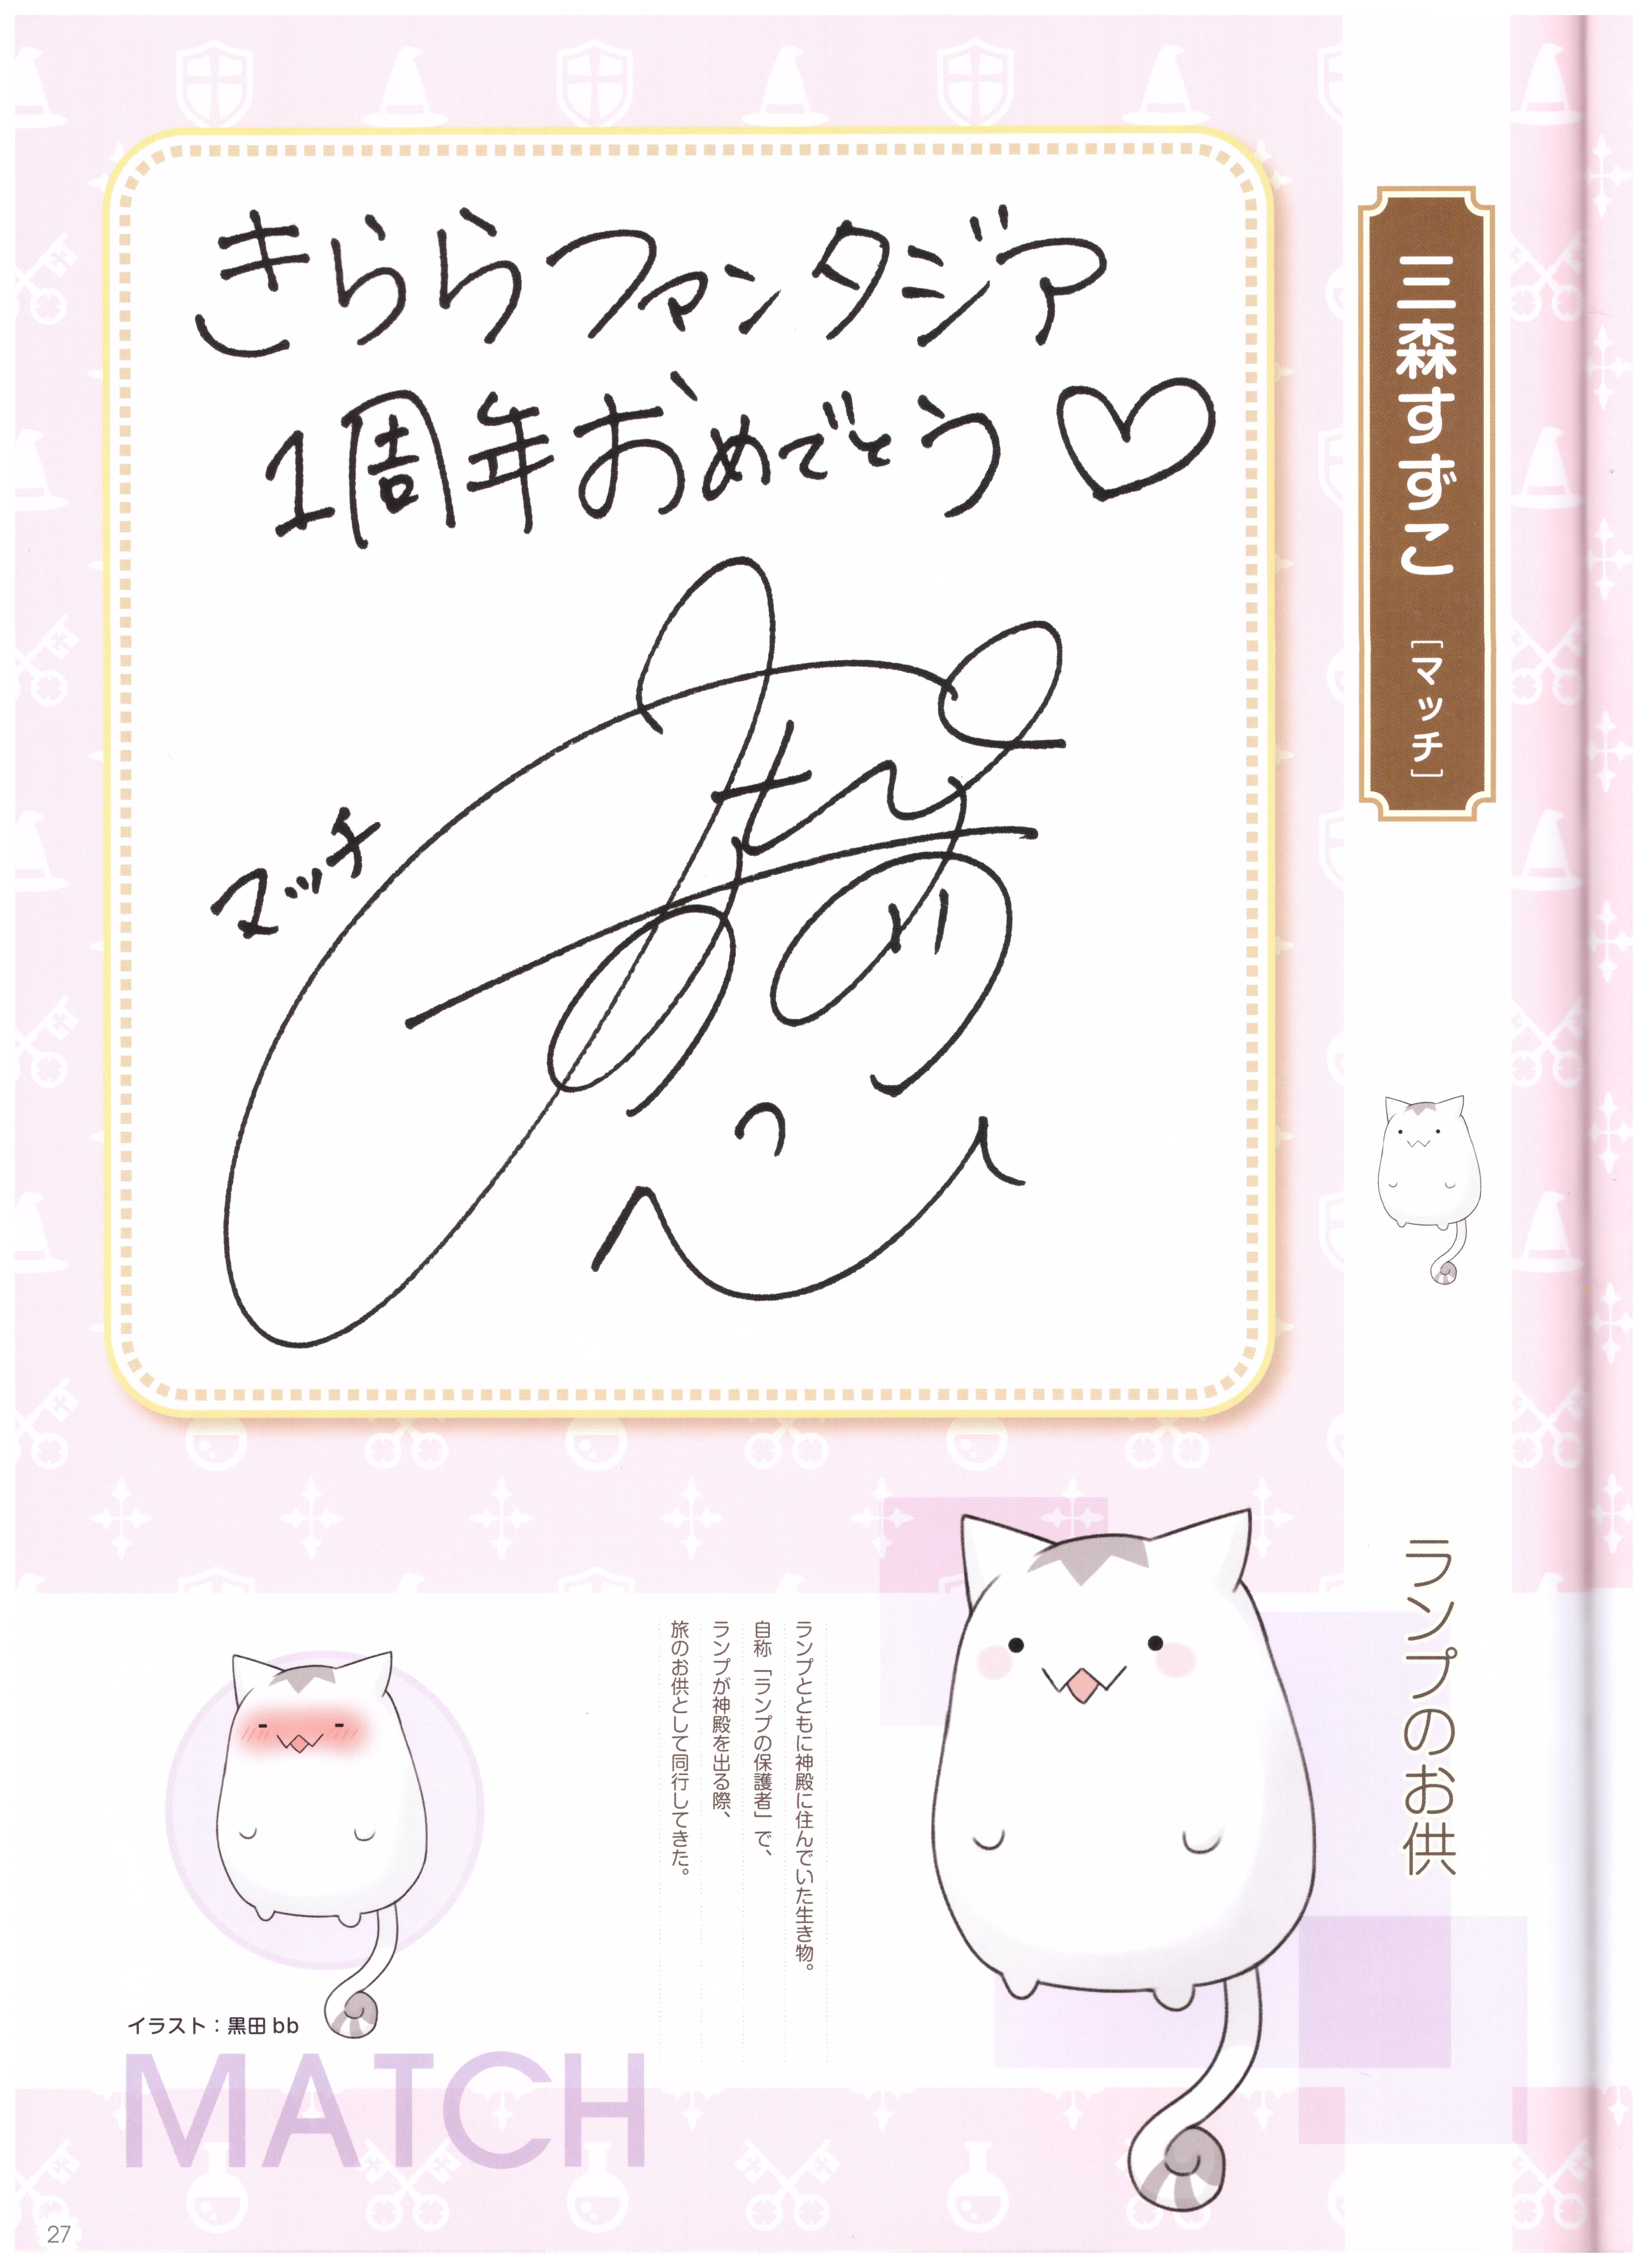 三森すずこ
［マッチ］
きららファンタジア
1周年おめでとう♡
マッチ
ランプのお供
ランプとともに神殿に住んでいた生き物。
自称「ランプの保護者」で、
ランプが神殿を出る際、
旅のお供として同行してきた。
イラスト：黒田bb
MATCH
27